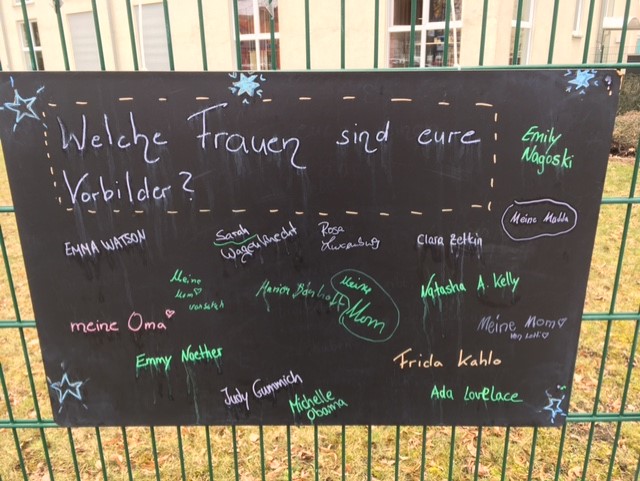 Welche Frauen sind eure
Vorbilder?
Emily
Nagoski
Meine Mama
EMMA WATSON
Sarah
Wagenknecht
Rosa
Luxemburg
Clara Zetkin
Meine
Mom♡
Meine
Mom
Natasha A. Kelly
meine Oma♡
Meine Mom♡
von Lotti♡
Emmy Noether
Frida Kahlo
Judy Gummich
Michelle
Obama
Ada Lovelace